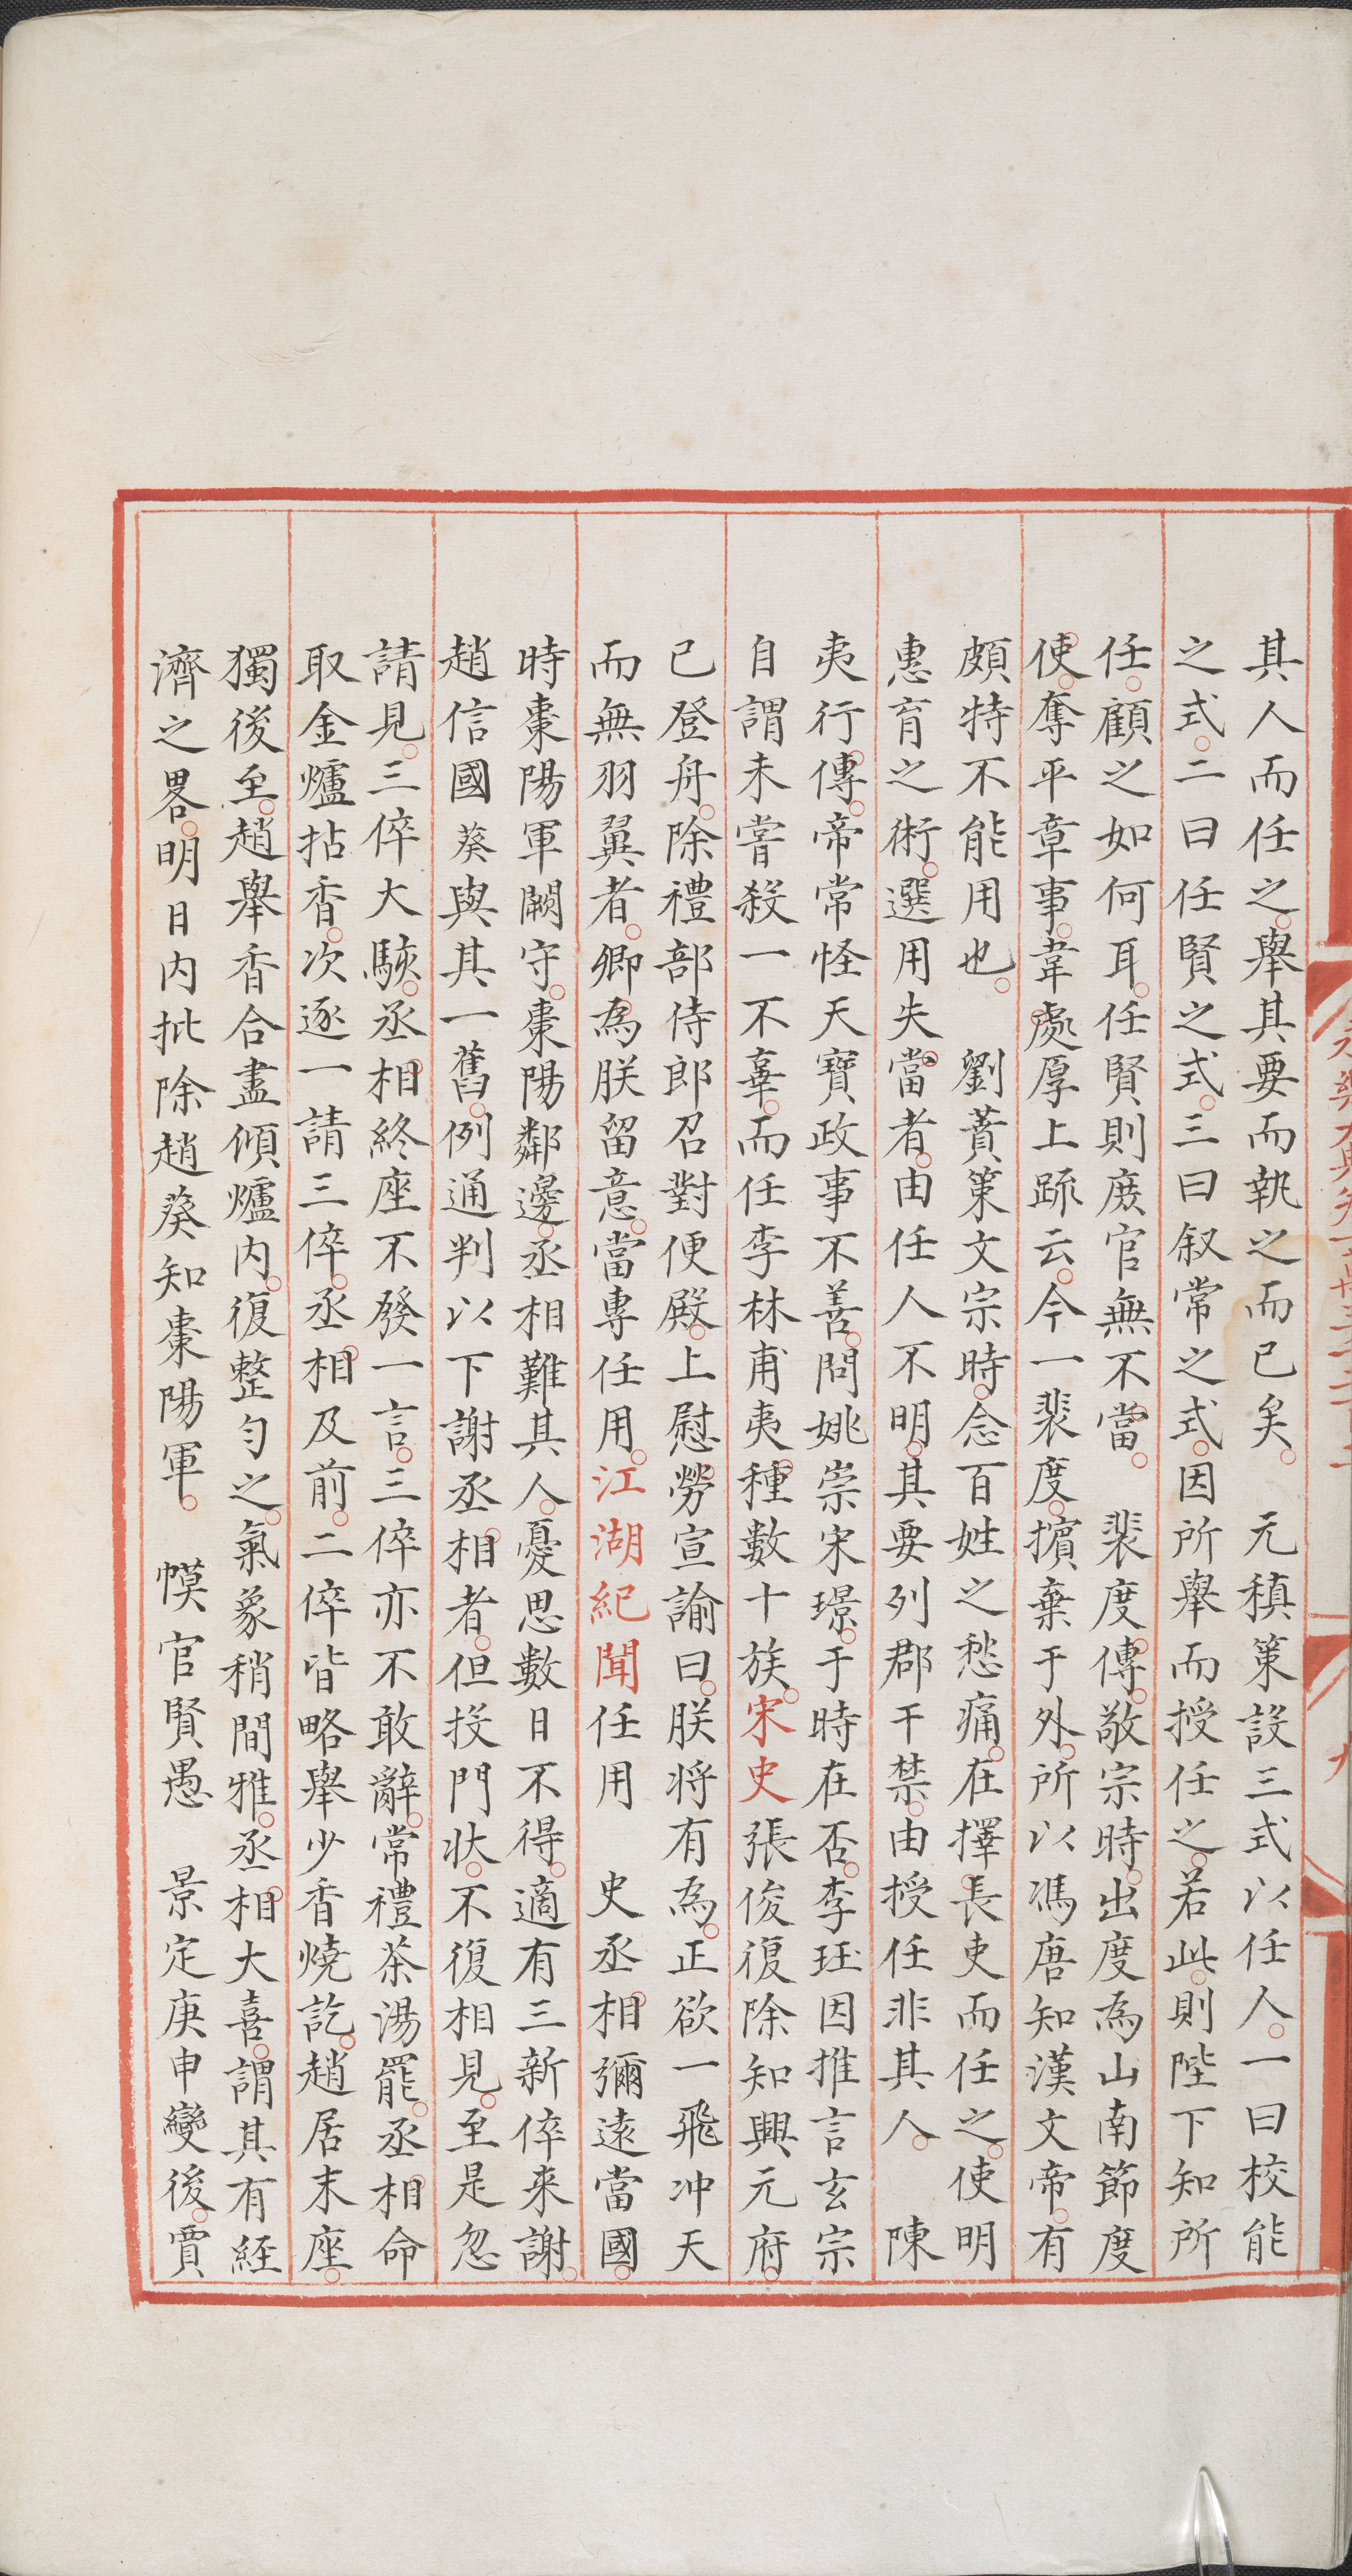 其人而任之。舉其要而執之而已矣。　元稹策設三式以任人。一曰校能
之式。二曰任賢之式。三曰叙常之式。因所舉而授任之。若此。則陛下知所
任。顧之如何耳。任賢則庶官無不當。　裴度傳。敬宗時。出度為山南節度
使。奪平章事。韋處厚上疏云。今一裴度。擯棄于外。所以馮唐知漢文帝。有
頗特不能用也。　劉蕡策文宗時。念百姓之愁痛。在擇長吏而任之。使明
惠育之術。選用失當者。由任人不明。其要列郡干禁。由授任非其人。　陳
夷行傳。帝常怪天寶政事不善。問姚崇宋璟。于時在否。李珏因推言玄宗
自謂未嘗殺一不辜。而任李林甫夷種數十族。宋史張俊復除知興元府。
已登舟。除禮部侍郎召對便殿。上慰勞宣諭曰。朕将有為。正欲一飛冲天
而無羽翼者。卿為朕留意。當專任用。江湖紀聞任用　史丞相彌遠當國。
時棗陽軍闕守。棗陽鄰邊。丞相難其人。憂思數日不得。適有三新倅来謝。
趙信國葵與其一舊。例通判以下謝丞相者。但投門状。不復相見。至是忽
請見。三倅大駭。丞相終座不發一言。三倅亦不敢辭。常禮茶湯罷。丞相命
取金爐拈香。次逐一請三倅。丞相及前。二倅皆略舉少香燒訖。趙居末座。
獨後至。趙舉香合盡傾爐内。復整勻之。氣象稍間雅。丞相大喜。謂其有経
濟之畧。明日内批除趙葵知棗陽軍。　幙官賢愚　景定庚申變後。賈